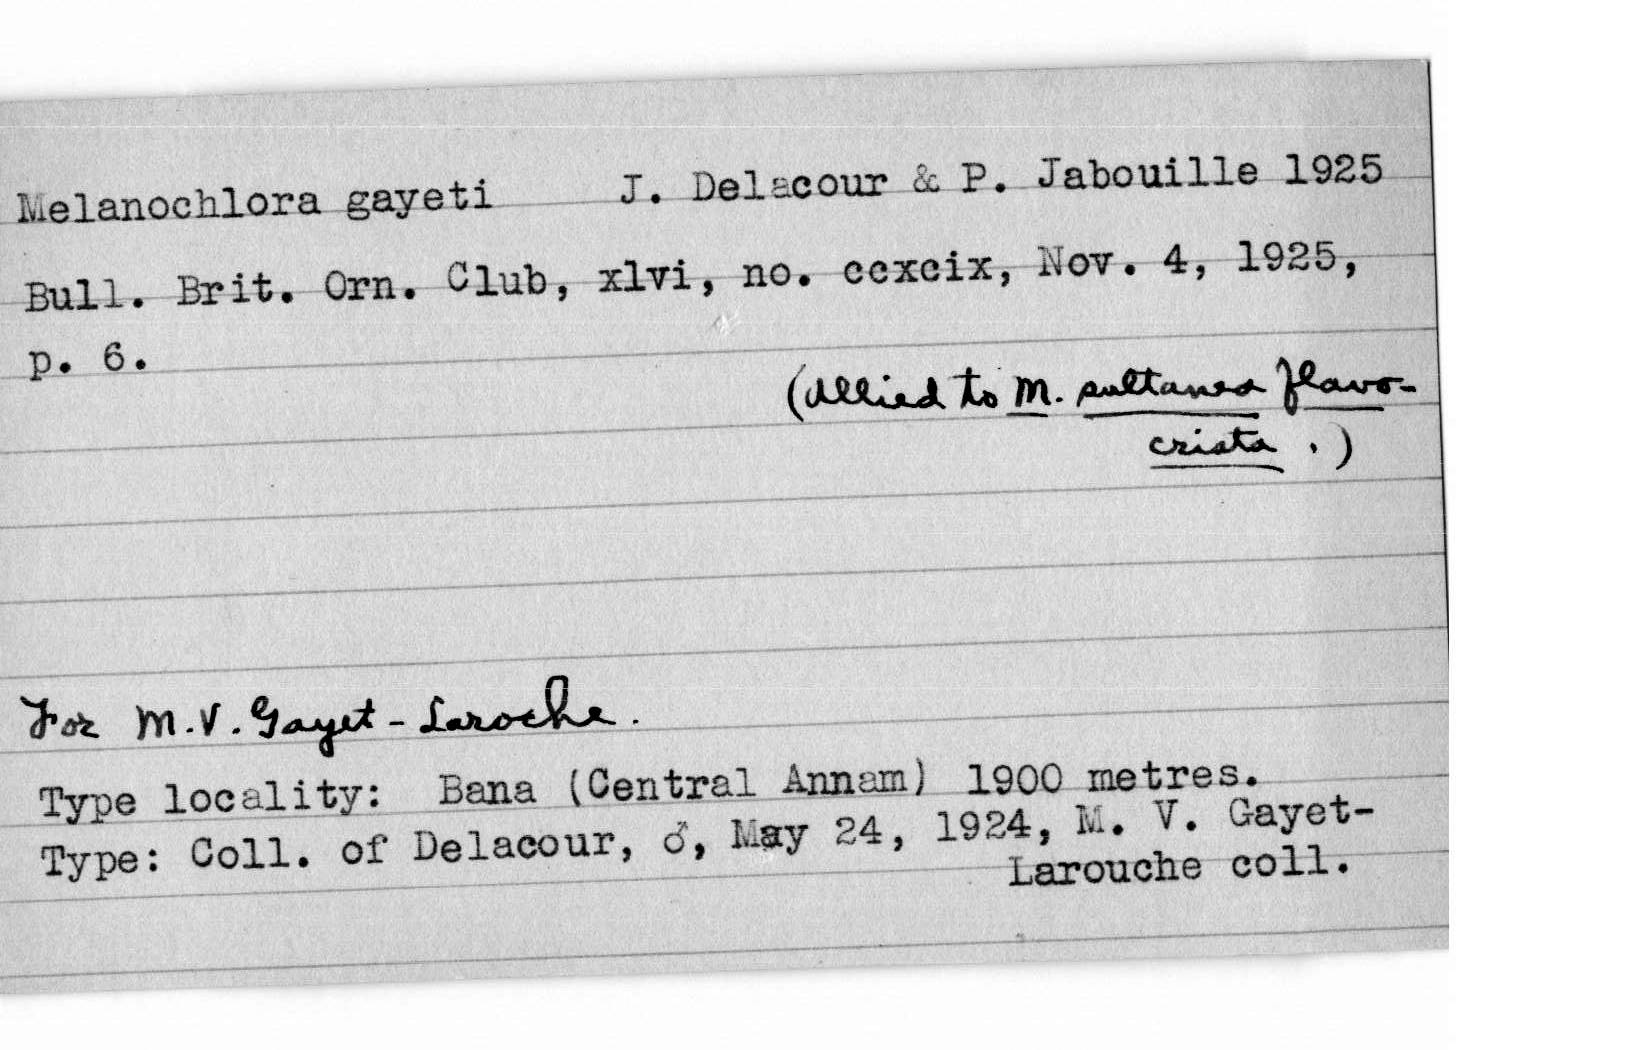 Melanochlora gayeti J. Delacour & P. Jabouille 1925
Bull. Brit. Orn. Club, xlvi, no. ccxcix, Nov. 4, 1925,
p. 6.
(Allied to M. sultanea flavo-
crista.)
For M.V. Gayet-Laroche.
Type locality: Bana (Central Annam) 1900 metres.
Type: Coll. of Delacour, ♂, May 24, 1924, M. V. Gayet-
Larouche coll.